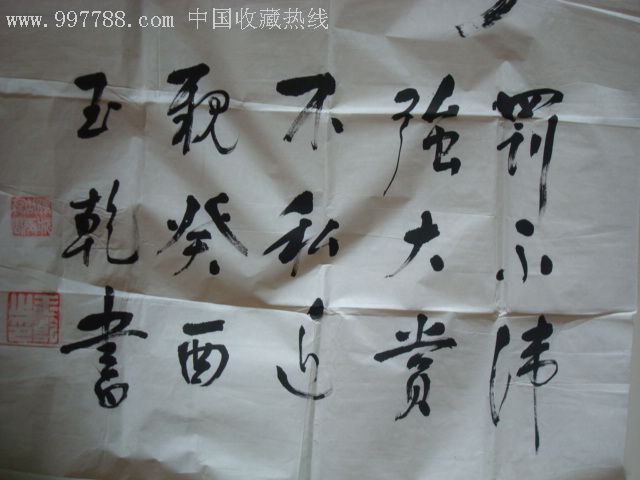 www.997788.com 中国收藏热线
罚不讳
強大赏
不私近
親癸酉
玉乾書